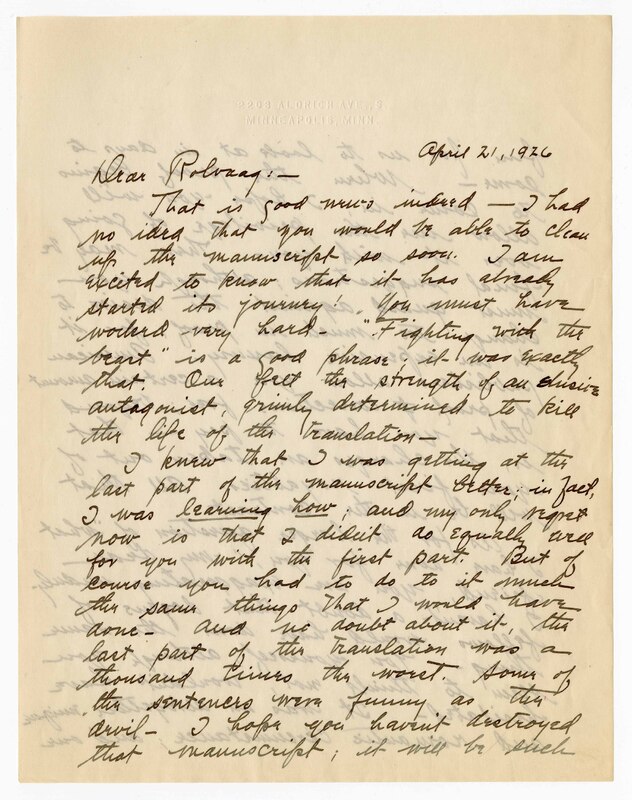 2203 ALDRICH AVE., S.
MINNEAPOLIS, MINN.
April 21, 1926
Dear Rolvaag:—
That is good news indeed — I had
no idea that you would be able to clean
up the manuscript so soon. I am
excited to know that it has already
started its journey! You must have
worked very hard — "Fighting with the
beast" is a good phrase; it was exactly
that. One felt the strength of an elusive
antagonist, grimly determined to kill
the life of the translation—
I knew that I was getting at the
last part of the manuscript better; in fact,
I was learning how; and my only regret
now is that I didn't do equally well
for you with the first part. But of
course you had to do to it much
the same things that I would have
done— and no doubt about it, the
last part of the translation was a
thousand times the worst. Some of
the sentences were funny as the
devil— I hope you haven't destroyed
that manuscript; it will be such